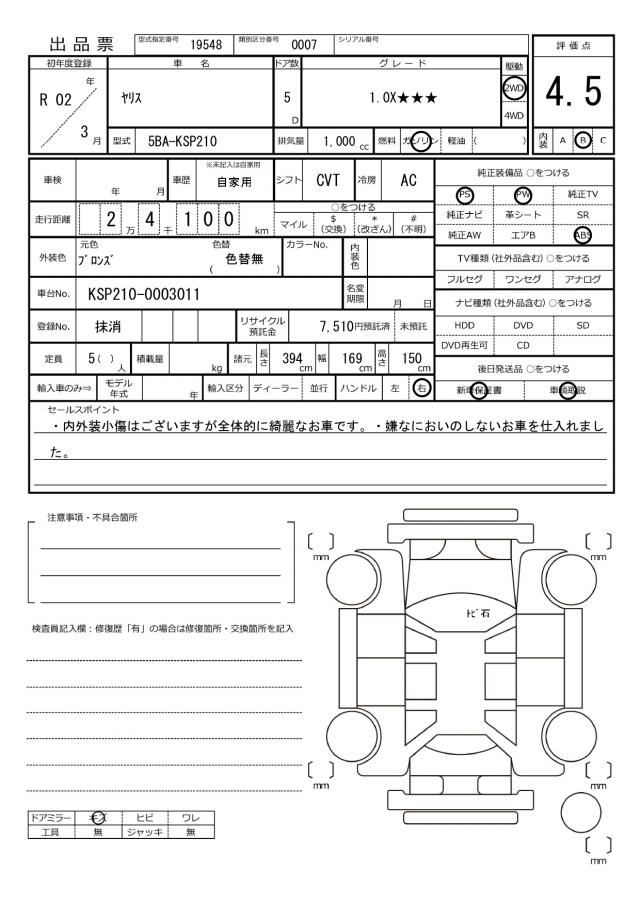 出品票 型式指定番号 19548 類別区分番号 0007 シリアル番号
評価点
4.5
内装 A B C
初年度登録 車名 ドア数 グレード 駆動
R 02 年 3 月 ヤリス 5 D 1.0X★★★ 2WD 4WD
型式 5BA-KSP210 排気量 1,000 cc 燃料 ガソリン 軽油 ( )
車検 年 月 車歴 ※未記入は自家用 自家用 シフト CVT 冷房 AC
走行距離 2 万 4 千 1 0 0 km ○をつける
マイル $(交換) *(改ざん) #(不明)
外装色 元色 ブロンズ 色替 ( 色替無 ) カラーNo. 内装色
車台No. KSP210-0003011 名変期限 月 日
登録No. 抹消 リサイクル預託金 7,510円預託済 未預託
定員 5( )人 積載量 kg 諸元 長さ 394 cm 幅 169 cm 高さ 150 cm
輸入車のみ⇒ モデル年式 年 輸入区分 ディーラー 並行 ハンドル 左 右
純正装備品 ○をつける
PS PW 純正TV
純正ナビ 革シート SR
純正AW エアB ABS
TV種類(社外品含む)○をつける
フルセグ ワンセグ アナログ
ナビ種類(社外品含む)○をつける
HDD DVD SD
DVD再生可 CD
後日発送品 ○をつける
新車保証書 車輌取説
セールスポイント
・内外装小傷はございますが全体的に綺麗なお車です。・嫌なにおいのしないお車を仕入れまし
た。
注意事項・不具合箇所
検査員記入欄：修復歴「有」の場合は修復箇所・交換箇所を記入
[ ] mm
[ ] mm
ﾄﾋﾞ石
[ ] mm
[ ] mm
[ ] mm
ドアミラー キズ ヒビ ワレ
工具 無 ジャッキ 無